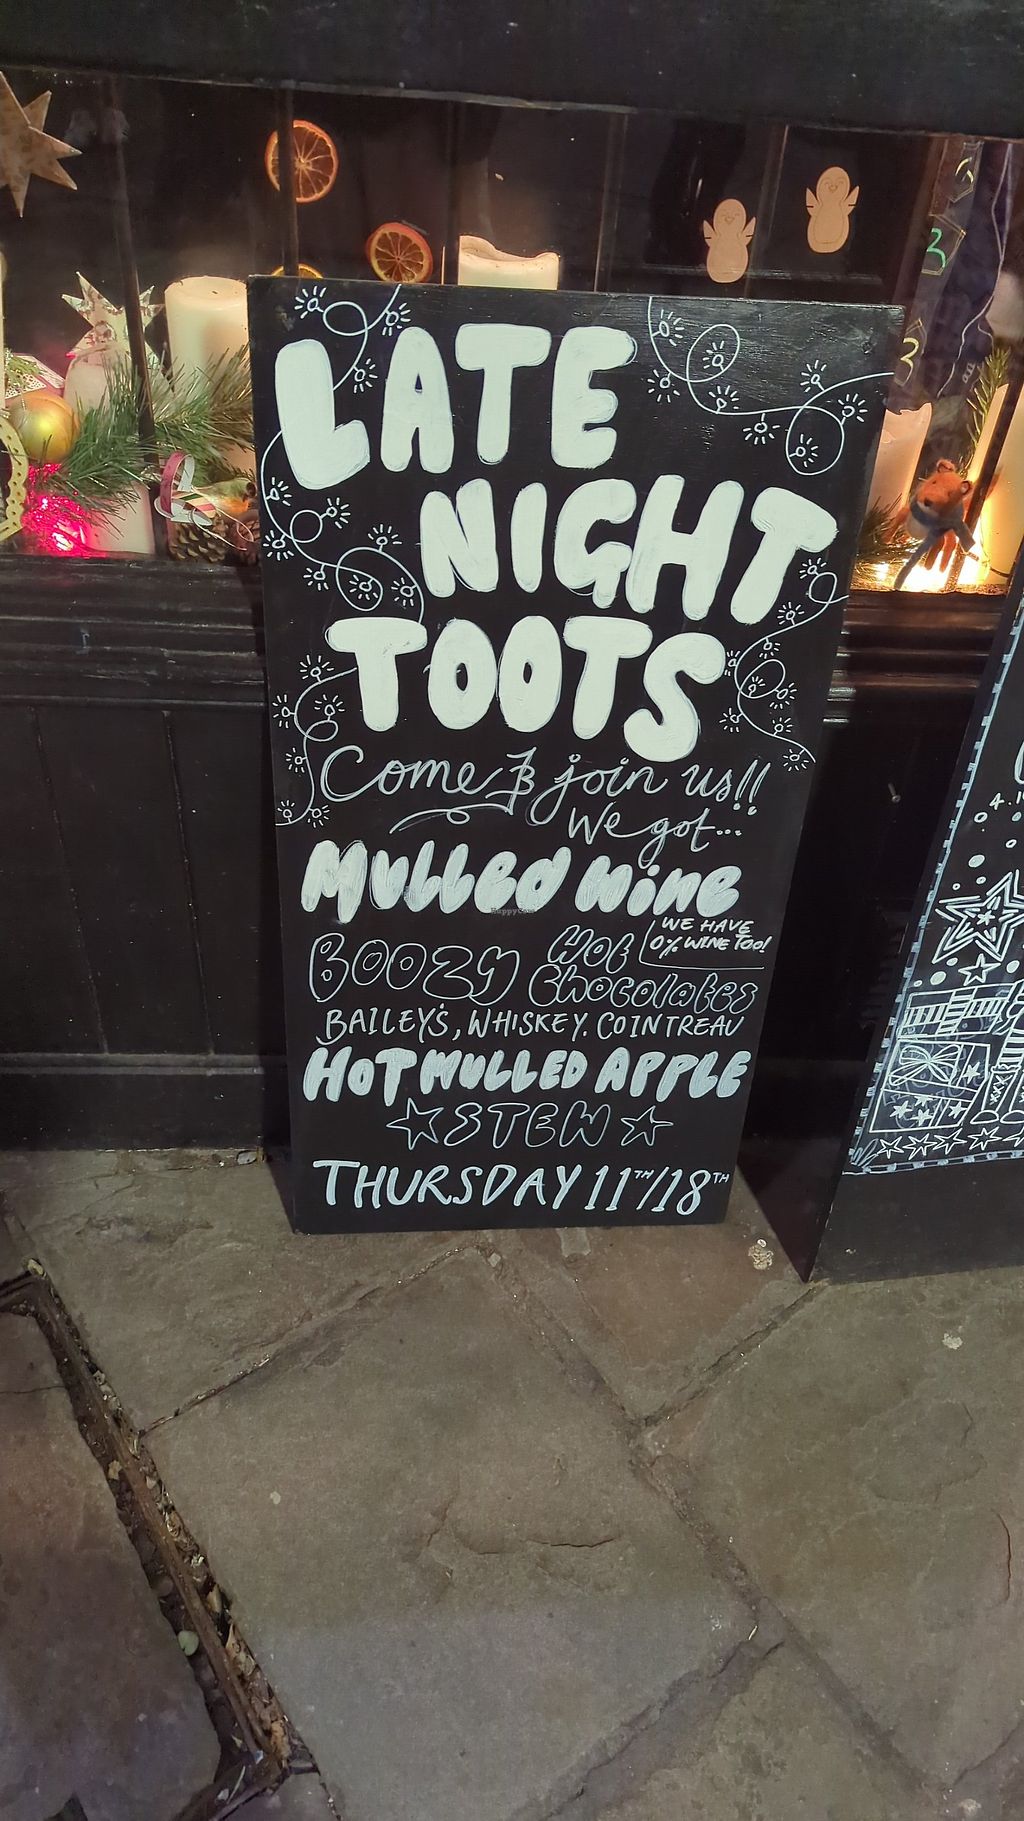 LATE
NIGHT
TOOTS
Come & join us!!
We got...
MULLED WINE
WE HAVE
0% WINE TOO!
BOOZY HOT
CHOCOLATES
BAILEY'S, WHISKEY. COINTREAU
HOT MULLED APPLE
STEW
THURSDAY 11TH/18TH